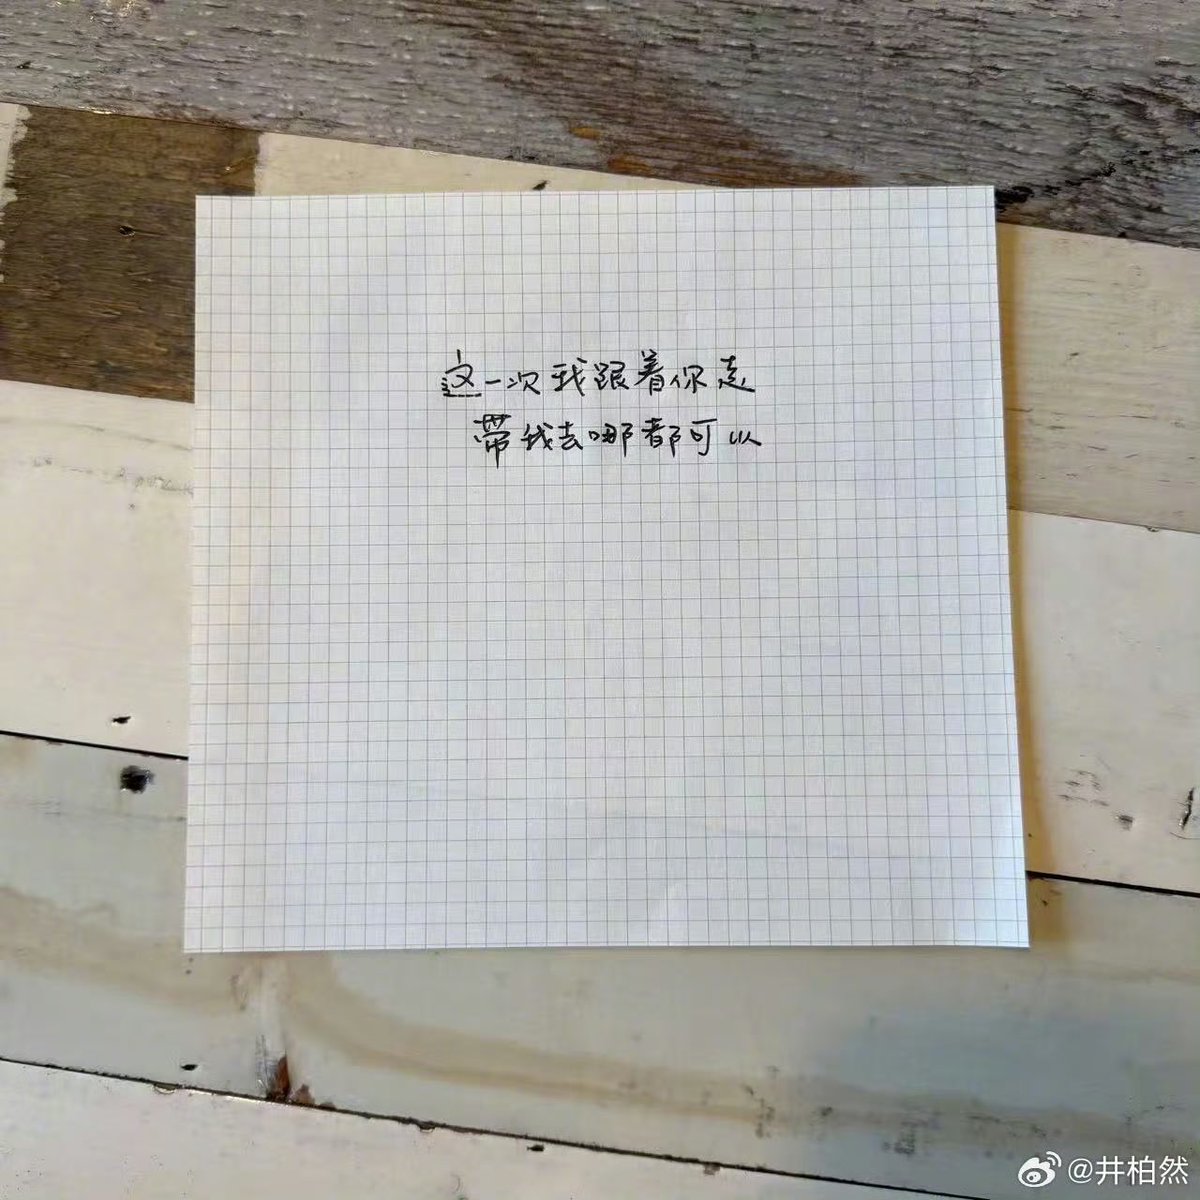 这一次我跟着你走
带我去哪都可以
@井柏然